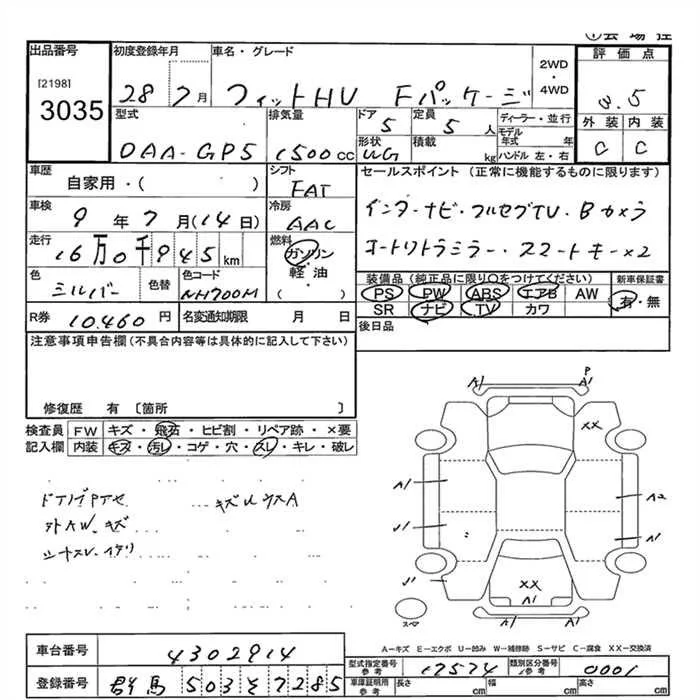 出品番号
[2198]
3035
初度登録年月
28 7月
車名・グレード
フィットHV Fパッケージ
2WD
・
4WD
評価点
3.5
外装 内装
C C
型式
DAA-GP5
排気量
1500cc
ドア
5
定員
5人
形状
WG
積載
kg
ディーラー・並行
モデル年式 年
ハンドル 左・右
車歴
自家用・( )
シフト
FAT
車検
9年7月(14日)
冷房
AAC
走行
16万0千945km
燃料
ガソリン
・
軽油
( )
色
シルバー
色替
色コード
NH700M
セールスポイント(正常に機能するものに限ります)
インターナビ・フルセグTV・Bカメラ
オートリトラミラー・スマートキー×2
装備品(純正品に限り○をつけてください)
PS PW ABS エアB AW
SR ナビ TV カワ
新車保証書
有・無
R券 10,460円
名変通知期限 月 日
後日品
注意事項申告欄(不具合内容等は具体的に記入して下さい)
修復歴 有〔箇所 〕
検査員記入欄
FW キズ・飛石・ヒビ割・リペア跡・×要
内装 キズ・汚レ・コゲ・穴・スレ・キレ・破レ
外AW.キズ
A1
P
A1
XX
A1
A2
A1
XX
A1
スペア
A-キズ E-エクボ U-凹み W-補修跡 S-サビ C-腐食 XX-交換済
車台番号 4302914
登録番号 群馬 503 そ 7285
型式指定番号 参考 17574
類別区分番号 参考 0001
車庫証明用 参考
長さ cm
幅 cm
高さ cm